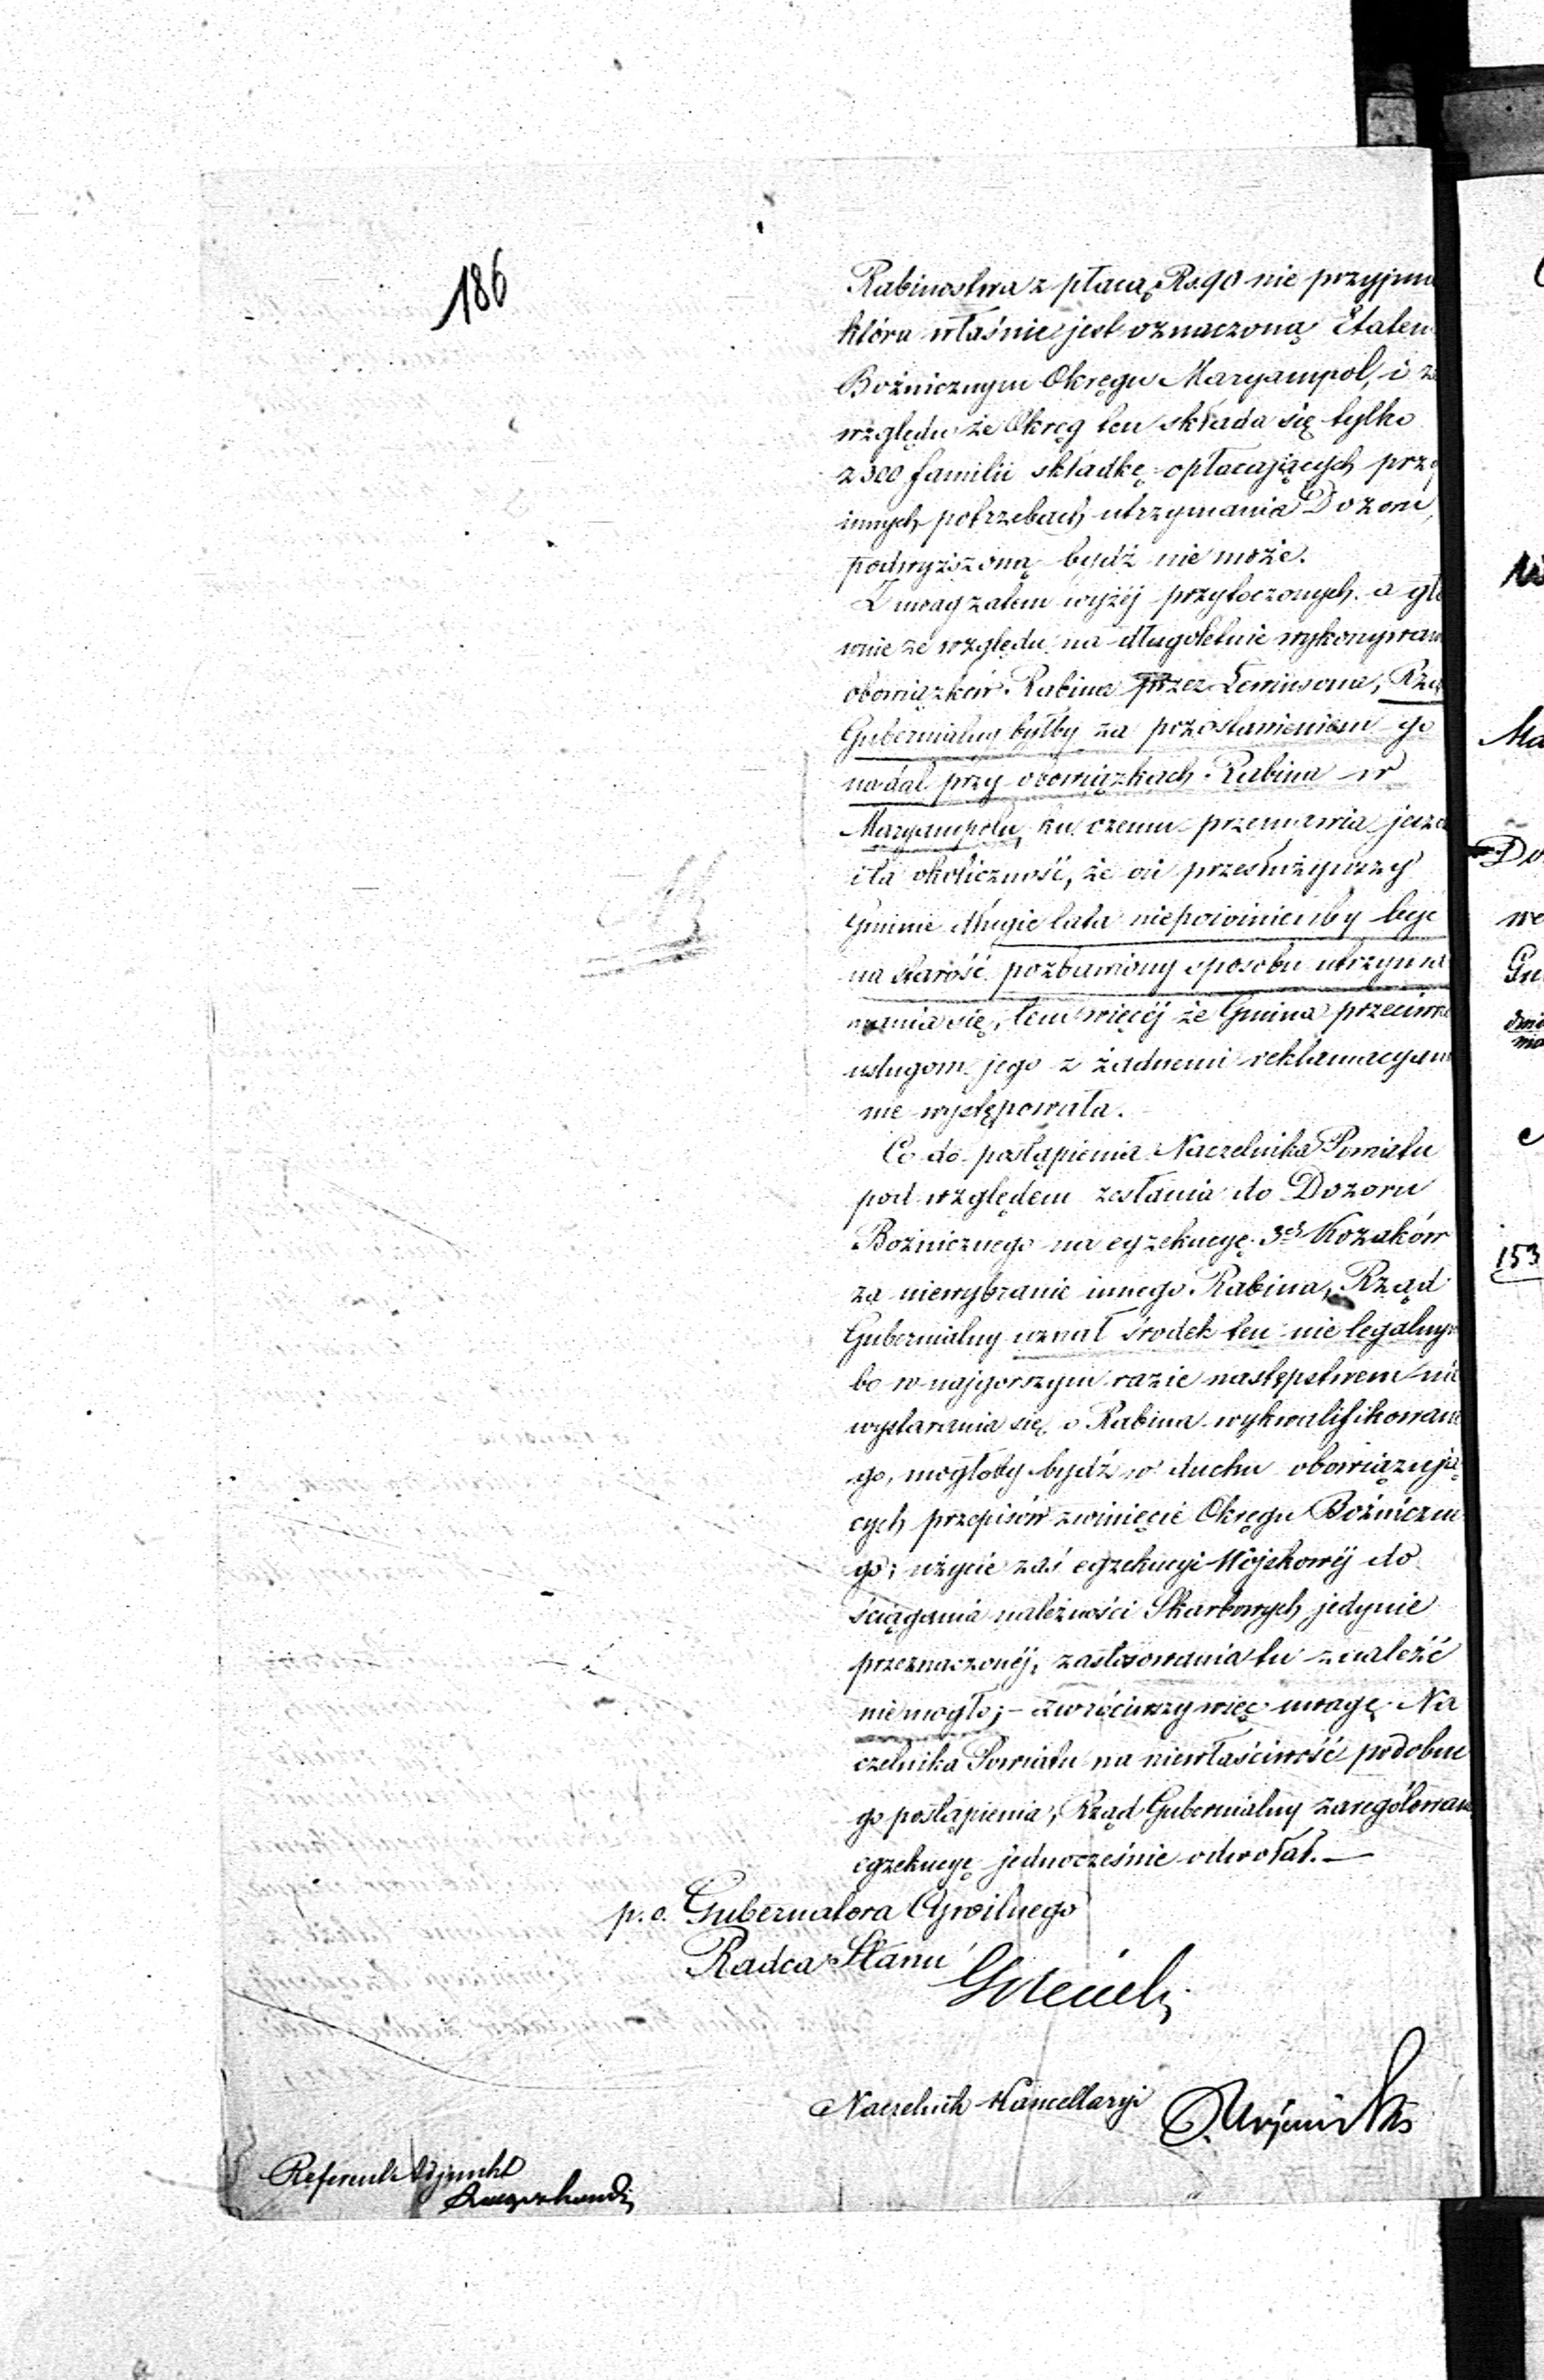 186
Rabinostwa z płacą Rs. 90 nie przyjmu
która właśnie jest oznaczoną Etatem
Bożnicznym Okręgu Maryampol, i z
względu że Okręg ten składa się tylko
z 300 familii składkę opłacających przy
innych potrzebach utrzymania Dozoru,
podwyższoną bydź nie może.
Z uwag zatem wyżéj przytoczonych a głó
wnie ze względu na długoletnie wykonywan
obowiązków Rabina przez Lewinsona, Rzą
Gubernialny byłby za pozostawieniem go
nadal przy obowiązkach Rabina w
Maryampolu, ku czemu przemawia jeszc
i ta okoliczność, że on przesłużywszy
Gminie długie lata niepowinienby być
na starość pozbawiony sposobu utrzyma
mania się, tem więcéj że Gmina przeciwko
usługom jego z żadnemi reklamacyami
nie występowała.
Co do postąpienia Naczelnika Powiatu
pod względem zesłania do Dozoru
Bożnicznego na egzekucyę 3ch Kozaków
za niewybranie innego Rabina, Rząd
Gubernialny uznał środek ten nie legalnym
bo w najgorszym razie następstwem nie
wystarania się o Rabina wykwalifikowane
go, mogłoby bydź w duchu obowiązują
cych przepisów zwinięcie Okręgu Bożniczne
go; użycie zaś egzekucyi Wojskowéj do
ściągania należności Skarbowych jedynie
przeznaczonéj, zastosowania tu znaleźć
nie mogło; – zwróciwszy więc uwagę Na
czelnika Powiatu na niewłaściwość podobne
go postąpienia, Rząd Gubernialny zarególowan
egzekucyę jednocześnie odwołał. —
p. o. Gubernatora Cywilnego
Radca Stanu
Naczelnik Kancellaryi
Referent Adjunkt
Ma
Do
we
Gu
153